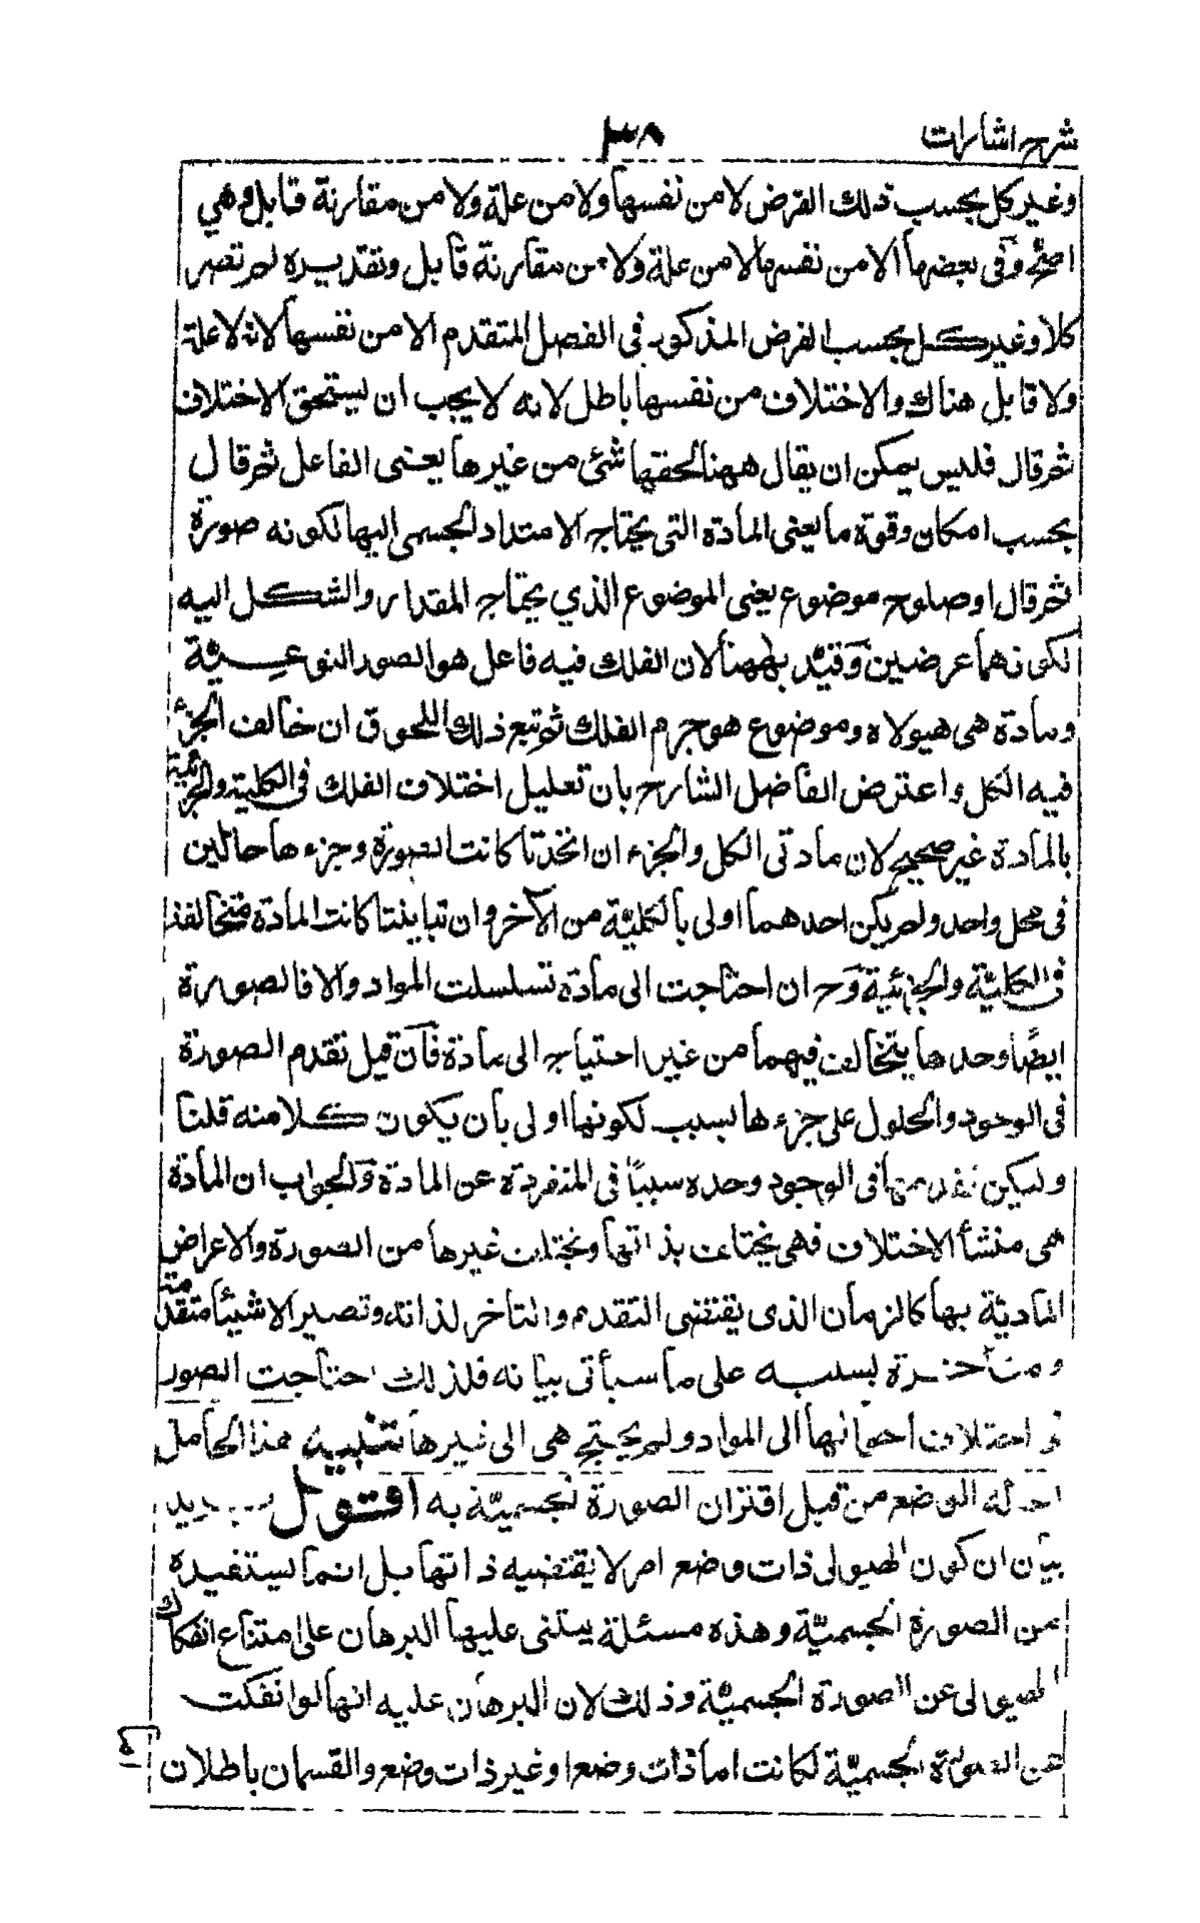 شرح اشارات
٣٨
وغير كل بحسب ذلك الفرض لا من نفسها ولا من علة ولا من مقارنة قابل وهي
اصح وفى بعضها الا من نفسها لا من علة ولا من مقارنة قابل وتقديره لم تصر
كلا وغير كل بحسب الفرض المذكور فى الفصل المتقدم الا من نفسها لانه لا علة
ولا قابل هناك والاختلاف من نفسها باطل لانه لا يجب ان يستحق الاختلاف
ثم قال فليس يمكن ان يقال ههنا لحقها شئ من غيرها يعنى الفاعل ثم قال
بحسب امكان وقوة ما يعنى المادة التى يحتاج الامتداد الجسمى اليها لكونه صورة
ثم قال او صلوح موضوع يعنى الموضوع الذي يحتاج المقدار والشكل اليه
لكونهما عرضين وقيد بههنا لان الفلك فيه فاعل هو الصور النوعيّة
ومادة هى هيولاه وموضوع هو جرم الفلك ثم تبع ذلك اللحوق ان خالف الجزء
فيه الكل واعترض الفاضل الشارح بان تعليل اختلاف الفلك فى الكلية والجزئية
بالمادة غير صحيح لان مادتى الكل والجزء ان اتحدتا كانت الصورة وجزءها حالين
فى محل واحد ولم يكن احدهما اولى بالكليّة من الآخر وان تباينتا كانت المادة متخالفة
فى الكليّة والجزئية وح ان احتاجت الى مادة تسلسلت المواد والا فالصورة
ايضًا وحدها يتخالف فيهما من غير احتياج الى مادة فان قيل تقدم الصورة
فى الوجود والحلول على جزءها بسبب لكونها اولى بان يكون كلا منه قلنا
وليكن تقدمها فى الوجود وحده سببًا فى المنفردة عن المادة والجواب ان المادة
هى منشأ الاختلاف فهى تختلف بذاتها وتختلف غيرها من الصورة والاعراض
المادية بها كالزمان الذى يقتضى التقدم والتاخر لذاته وتصير الاشيأ متقدمة
ومتأخرة بسببه على ما سيأتى بيانه فلذلك احتاجت الصور
فى اختلاف احوالها الى المواد ولم يحتج هى الى غيرها تنبيه هذا الحامل
انما له الوضع من قبل اقتران الصورة الجسميّة به اقول يريد
بيان ان كون الهيولى ذات وضع امر لا يقتضيه ذاتها بل انما يستفيده
من الصورة الجسميّة وهذه مسئلة يبتنى عليها البرهان على امتناع انفكاك
الهيولى عن الصورة الجسميّة وذلك لان البرهان عليه انها لو انفكت
عن الصورة الجسميّة لكانت اما ذات وضع او غير ذات وضع والقسمان باطلان